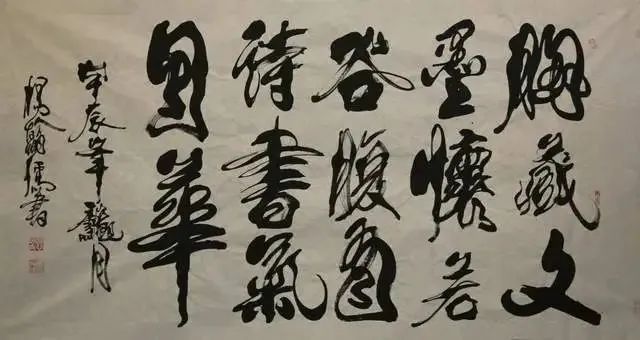 胸藏文
墨懷若
谷腹有
詩書氣
自華
甲辰年龍月
書